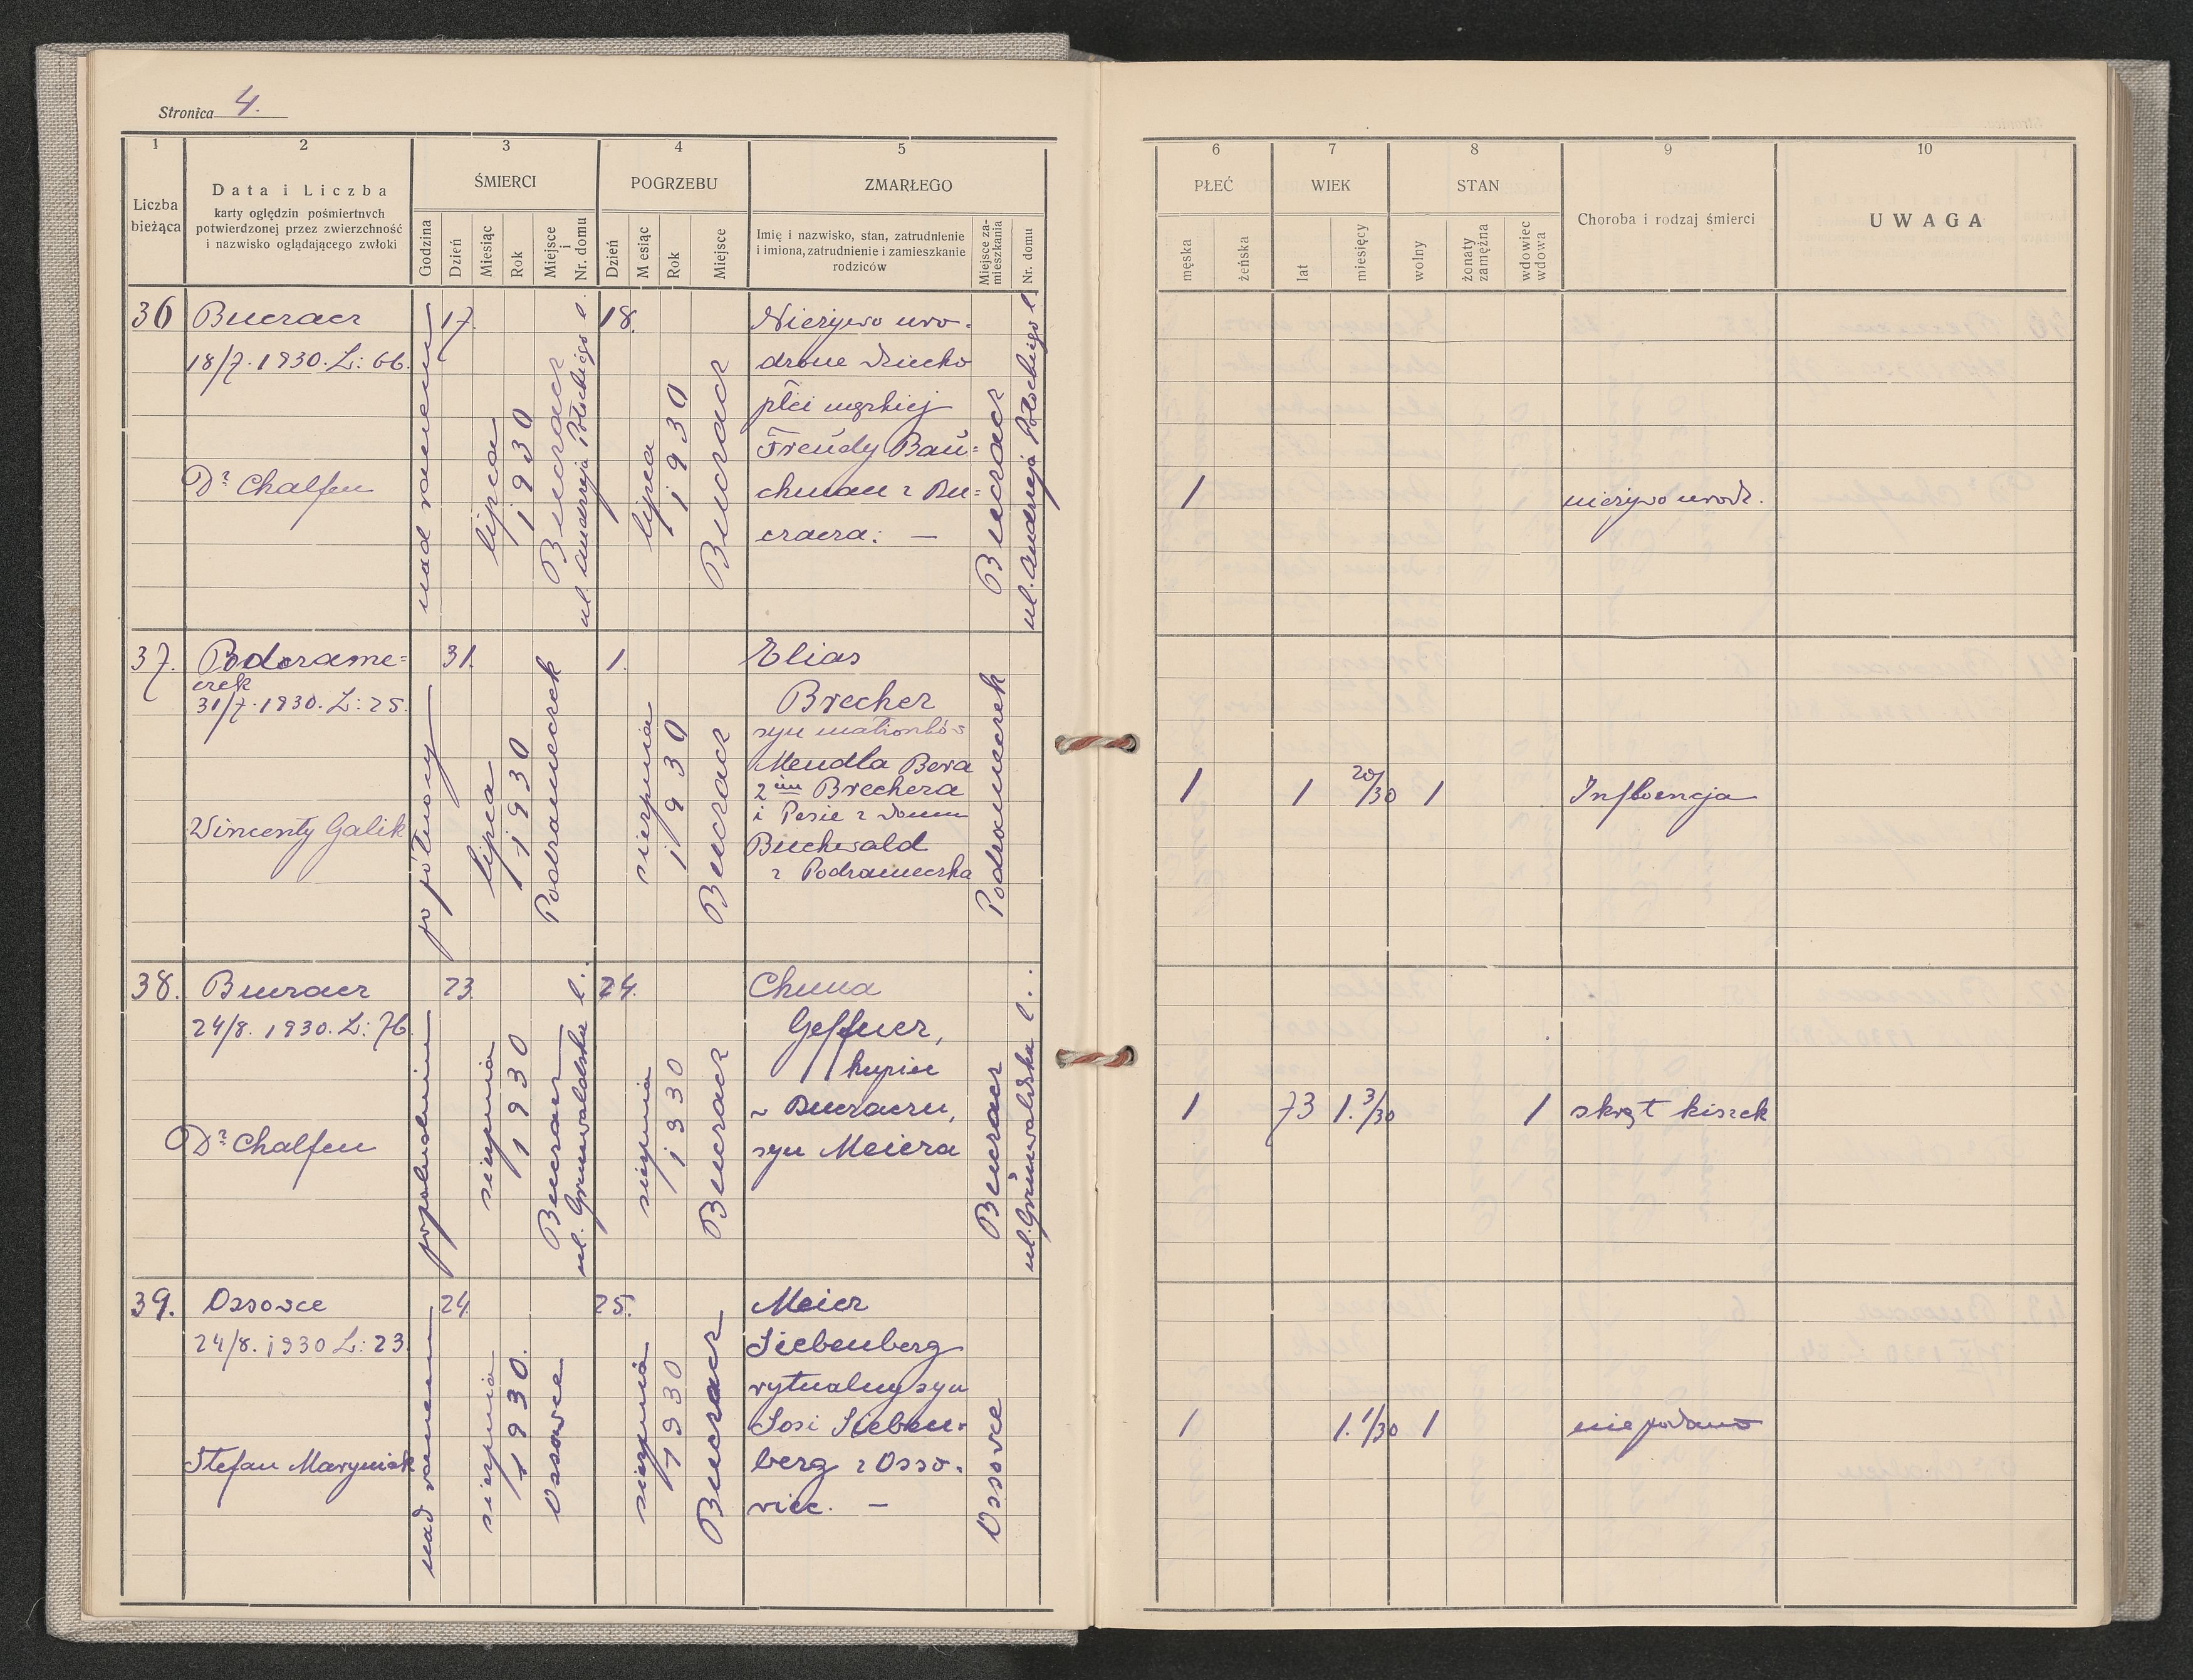 Stronica 4.
1 2 3 4 5
Liczba bieżąca
Data i Liczba
karty oględzin pośmiertnych
potwierdzonej przez zwierzchność
i nazwisko oglądającego zwłoki
ŚMIERCI
Godzina
Dzień
Miesiąc
Rok
Miejsce i Nr. domu
POGRZEBU
Dzień
Miesiąc
Rok
Miejsce
ZMARŁEGO
Imię i nazwisko, stan, zatrudnienie
i imiona, zatrudnienie i zamieszkanie
rodziców
Miejsce za-
mieszkania
Nr. domu
6 7 8 9 10
PŁEĆ
męska
żeńska
WIEK
lat
miesięcy
STAN
wolny
żonaty
zamężna
wdowiec
wdowa
Choroba i rodzaj śmierci
UWAGA
36
Buczacz
18/7. 1930. L: 66.
Dr Chalfen
nad ranem
17.
lipca
1930
Buczacz
ul. Andrzeja Potockiego l.
18.
lipca
1930
Buczacz
Nieżywo uro-
dzone dziecko
płci męskiej
Freudy Bau=
chman z Bu=
czacza. —
Buczacz
ul. Andrzeja Potockiego l.
1
nieżywo urodz.
37.
Podzame=
czek
31/7. 1930. L: 25.
Wincenty Galik
po północy
31.
lipca
1930
Podzameczek
1.
sierpnia
1930
Buczacz
Elias
Brecher
syn małżonków
Mendla Bera
2 im Brechera
i Pesie z domu
Buchwald
z Podzameczka
Podzameczek
1
1
20/30
1
Influencja
38.
Buczacz
24/8. 1930. L: 76.
Dr Chalfen
popołudniu
23.
sierpnia
1930
Buczacz
ul. Grünwaldska l...
24.
sierpnia
1930
Buczacz
Chuna
Geffner,
kupiec
z Buczaczu,
syn Meiera
Buczacz
ul. Grünwaldska l...
1
73
1. 3/30
1
skręt kiszek
39.
Ossowce
24/8. 1930 L: 23.
Stefan Maryniak
nad ranem
24.
sierpnia
1930.
Ossowce
25.
sierpnia
1930
Buczacz
Meier
Siebenberg
rytualny syn
Sosi Sieben-
berg z Osso-
wiec. —
Ossowce
1
1. 1/30
1
nie podano